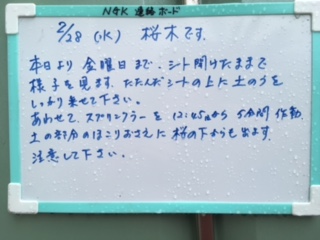 NGK 連絡ボード
2/28 (水) 桜木です。
本日より 金曜日まで、シート開けたままで
様子を見ます。たたんだシートの上に土のうを
しっかり乗せて下さい。
あわせて、スプリンクラーを 12:45から 5分間 作動
土の部分のほこりおさえに 桜の下からも出ます。
注意して下さい。